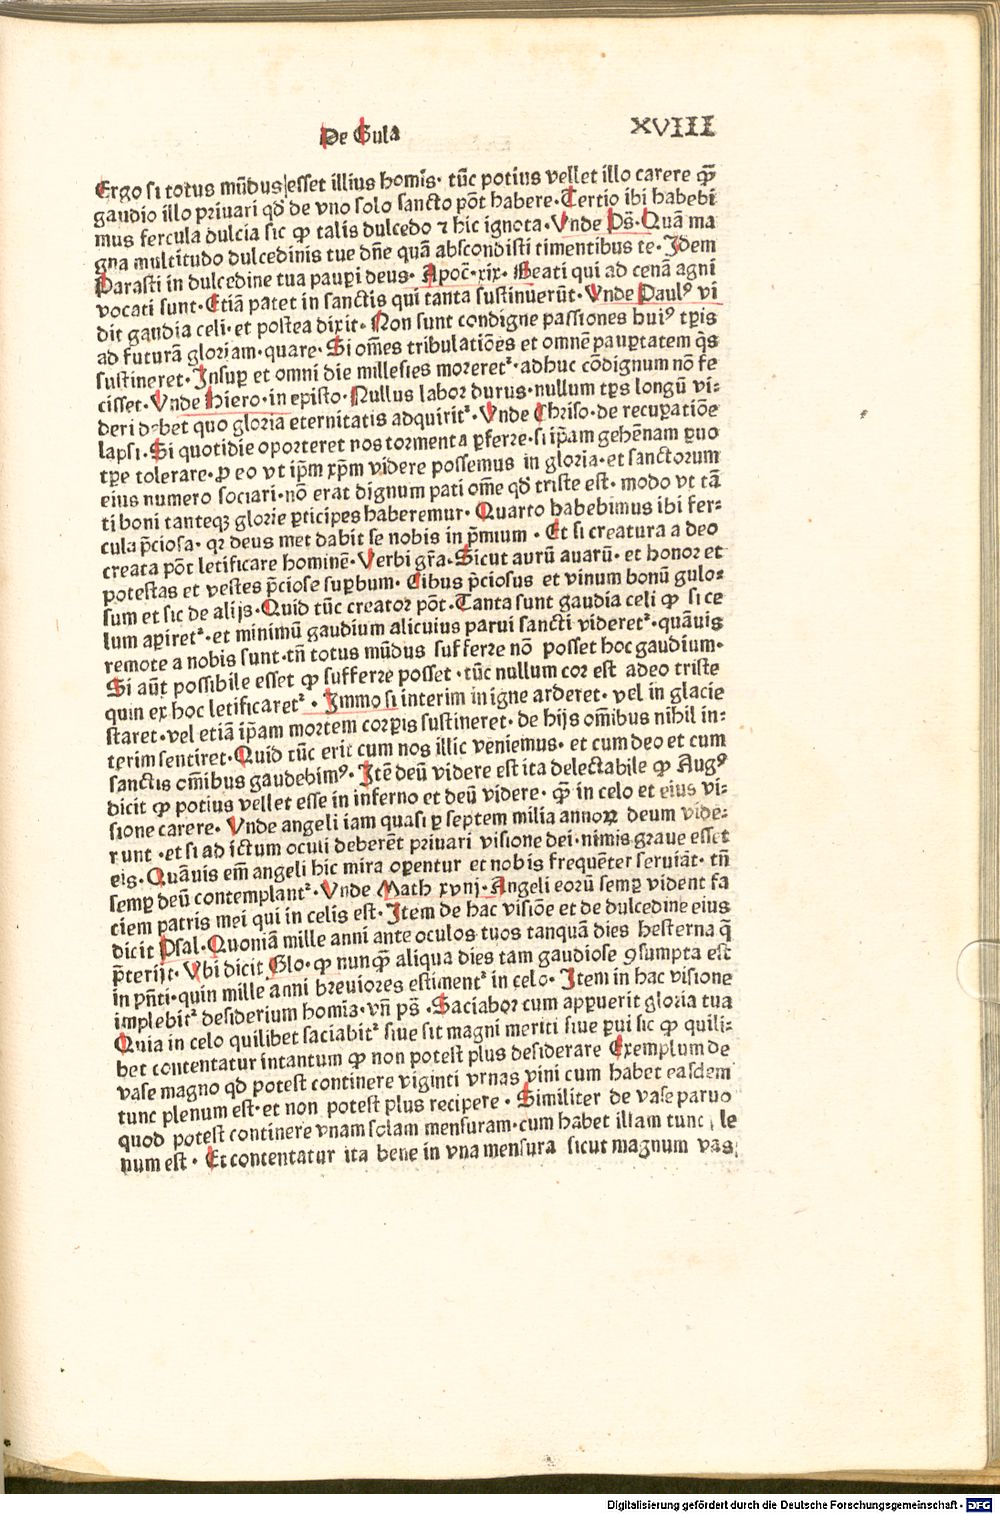 De Gula
XVIII
Ergo si totus mũdus esset illius homĩs· tũc potius vellet illo carere ꝙ̃
gaudio illo priuari qḋ de vno solo sancto põt habere·Tertio ibi habebi
mus fercula dulcia sic ꝙ talis dulcedo ⁊ hic ignota·Vnde Ps̃·Quã ma
gna multitudo dulcedinis tue dñe quã abscondisti timentibus te·Idem
Parasti in dulcedine tua pauꝑi deus· Apoc̃·xix· Beati qui ad cenã agni
vocati sunt·Etiã patet in sanctis qui tanta sustinuerũt·Vnde Paulꝰ vi
dit gaudia celi·et postea dixit·Non sunt condigne passiones huiꝰ tꝑis
ad futurã gloriam·quare·Si om̃es tribulatiões et omnẽ pauꝑtatem q̃s
sustineret·Insuꝑ et omni die millesies moreret᷑·adhuc cõdignum nõ fe
cisset·Vnde Hiero·in episto·Nullus labor durus·nullum tꝑs longũ vi⸗
deri debet quo gloria eternitatis adquirit᷑·Vnde Chriso·de recuꝑatiõe
lapsi·Si quotidie oporteret nos tormenta ꝑferre·si ip̃am gehẽnam ꝑuo
tꝑe tolerare·ꝓ eo vt ip̃m xp̃m videre possemus in gloria·et sanctorum
eius numero sociari·nõ erat dignum pati om̃e qḋ triste est· modo vt tã
ti boni tanteqꝫ glorie ꝑticipes haberemur· Quarto habebimus ibi fer⸗
cula p̃ciosa· qꝛ deus met dabit se nobis in p̃mium · Et si creatura a deo
creata põt letificare hominẽ·Verbi gr̃a·Sicut aurũ auarũ· et honor et
potestas et vestes p̃ciose suꝑbum· Cibus p̃ciosus et vinum bonũ gulo⸗
sum et sic de alijs·Quid tũc creator põt·Tanta sunt gaudia celi ꝙ si ce
lum aꝑiret᷑·et minimũ gaudium alicuius parui sancti videret᷑·quãuis
remote a nobis sunt·tñ totus mũdus sufferre nõ posset hoc gaudium·
Si aũt possibile esset ꝙ sufferre posset ·tũc nullum cor est adeo triste
quin ex hoc letificaret᷑ · Immo si interim in igne arderet· vel in glacie
staret·vel etiã ip̃am mortem corꝑis sustineret· de hijs om̃ibus nihil in⸗
terim sentiret·Quid tũc erit cum nos illic veniemus· et cum deo et cum
sanctis om̃ibus gaudebimꝰ·Itẽ deũ videre est ita delectabile ꝙ Augꝰ
dicit ꝙ potius vellet esse in inferno et deũ videre· ꝙ̃ in celo et eius vi⸗
sione carere· Vnde angeli iam quasi ꝑ septem milia annoꝝ deum vide⸗
runt ·et si ad ictum oculi deberẽt priuari visione dei·nimis graue esset
eis·Quãuis em̃ angeli hic mira oꝑentur et nobis frequẽter seruiãt· tñ
semꝑ deũ contemplant᷑·Vnde Math xvnj·Angeli eorũ semꝑ vident fa
ciem patris mei qui in celis est·Item de hac visiõe et de dulcedine eius
dicit Psal·Quoniã mille anni ante oculos tuos tanquã dies hesterna q̃
p̃terijt·Vbi dicit Glo·ꝙ nunꝙ̃ aliqua dies tam gaudiose ꝯsumpta est
in pñti·quin mille anni breuiores estiment᷑ in celo· Item in hac visione
implebit᷑ desiderium homĩs·vñ ps̃ ·Saciabor cum apꝑuerit gloria tua
Quia in celo quilibet saciabit᷑ siue sit magni meriti siue ꝑui sic ꝙ quili⸗
bet contentatur intantum ꝙ non potest plus desiderare Exemplum de
vase magno qḋ potest continere viginti vrnas vini cum habet easdem
tunc plenum est·et non potest plus recipere · Similiter de vase paruo
quod potest continere vnam solam mensuram·cum habet illam tunc le
num est · Et contentatur ita bene in vna mensura sicut magnum vas
Digitalisierung gefördert durch die Deutsche Forschungsgemeinschaft · DFG